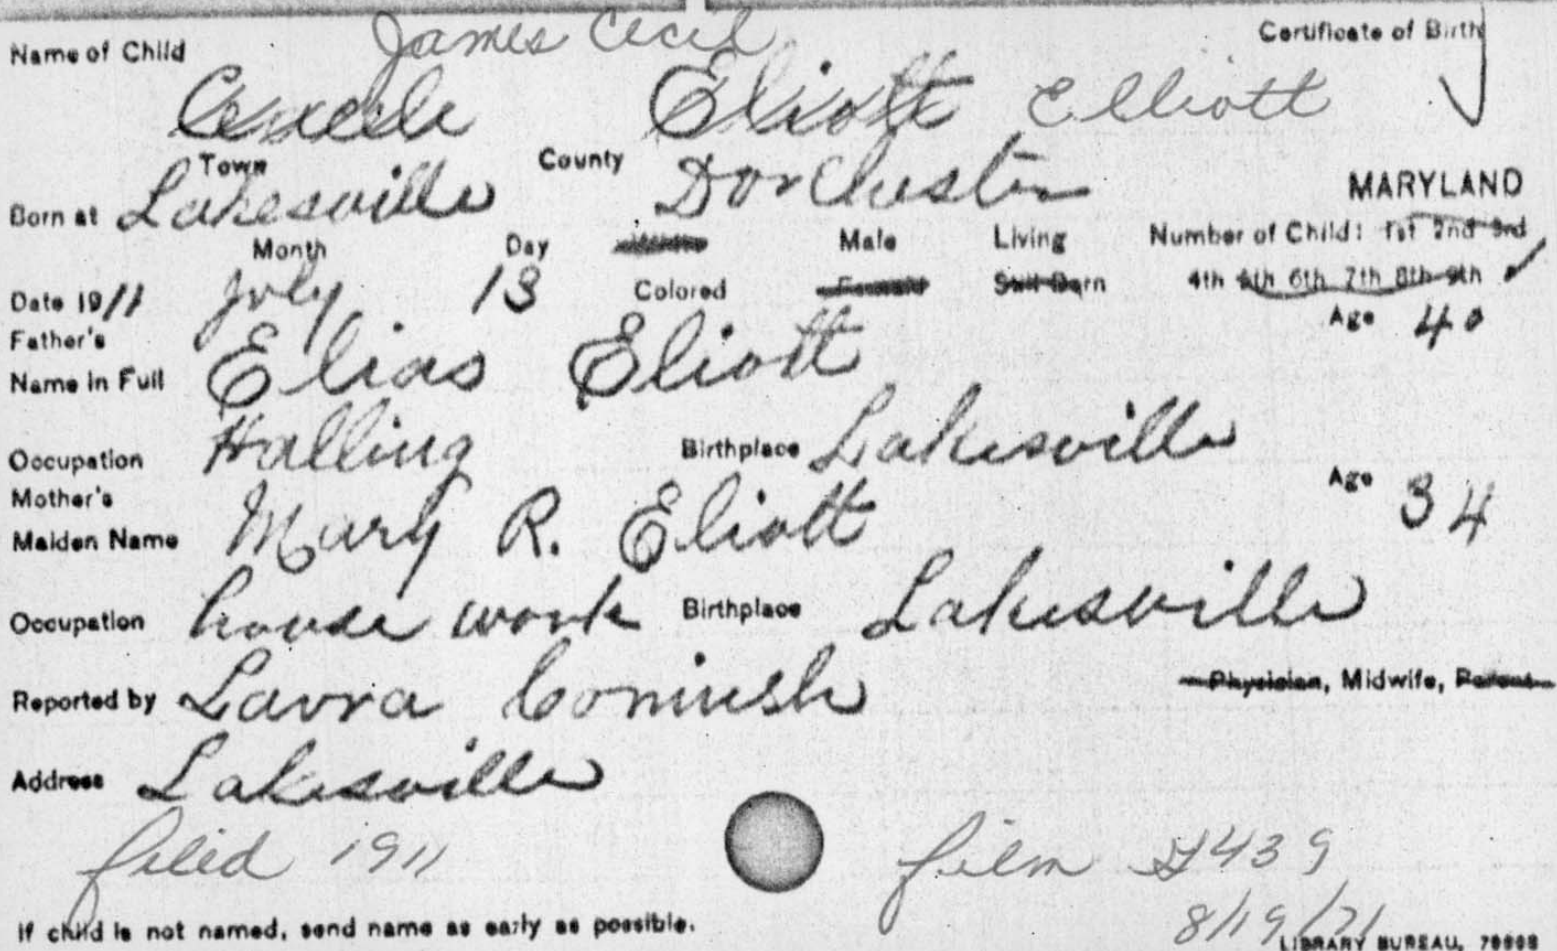 James Cecil
Name of Child Certificate of Birth
Eliott Elliott
Town County
Born at Lakesville Dorchester MARYLAND
Month Day White Male Living Number of Child: 1st 2nd 3rd
Date 1911 July 13 Colored Female Still Born 4th 5th 6th 7th 8th 9th
Father's Age 40
Name in Full Elias Eliott
Occupation Halling Birthplace Lakesville
Mother's Age 34
Maiden Name Mary R. Eliott
Occupation house work Birthplace Lakesville
Reported by Laura Cornish Physician, Midwife, Parent
Address Lakesville
filed 1911 film 439
If child is not named, send name as early as possible. 8/19/71
LIBRARY BUREAU,